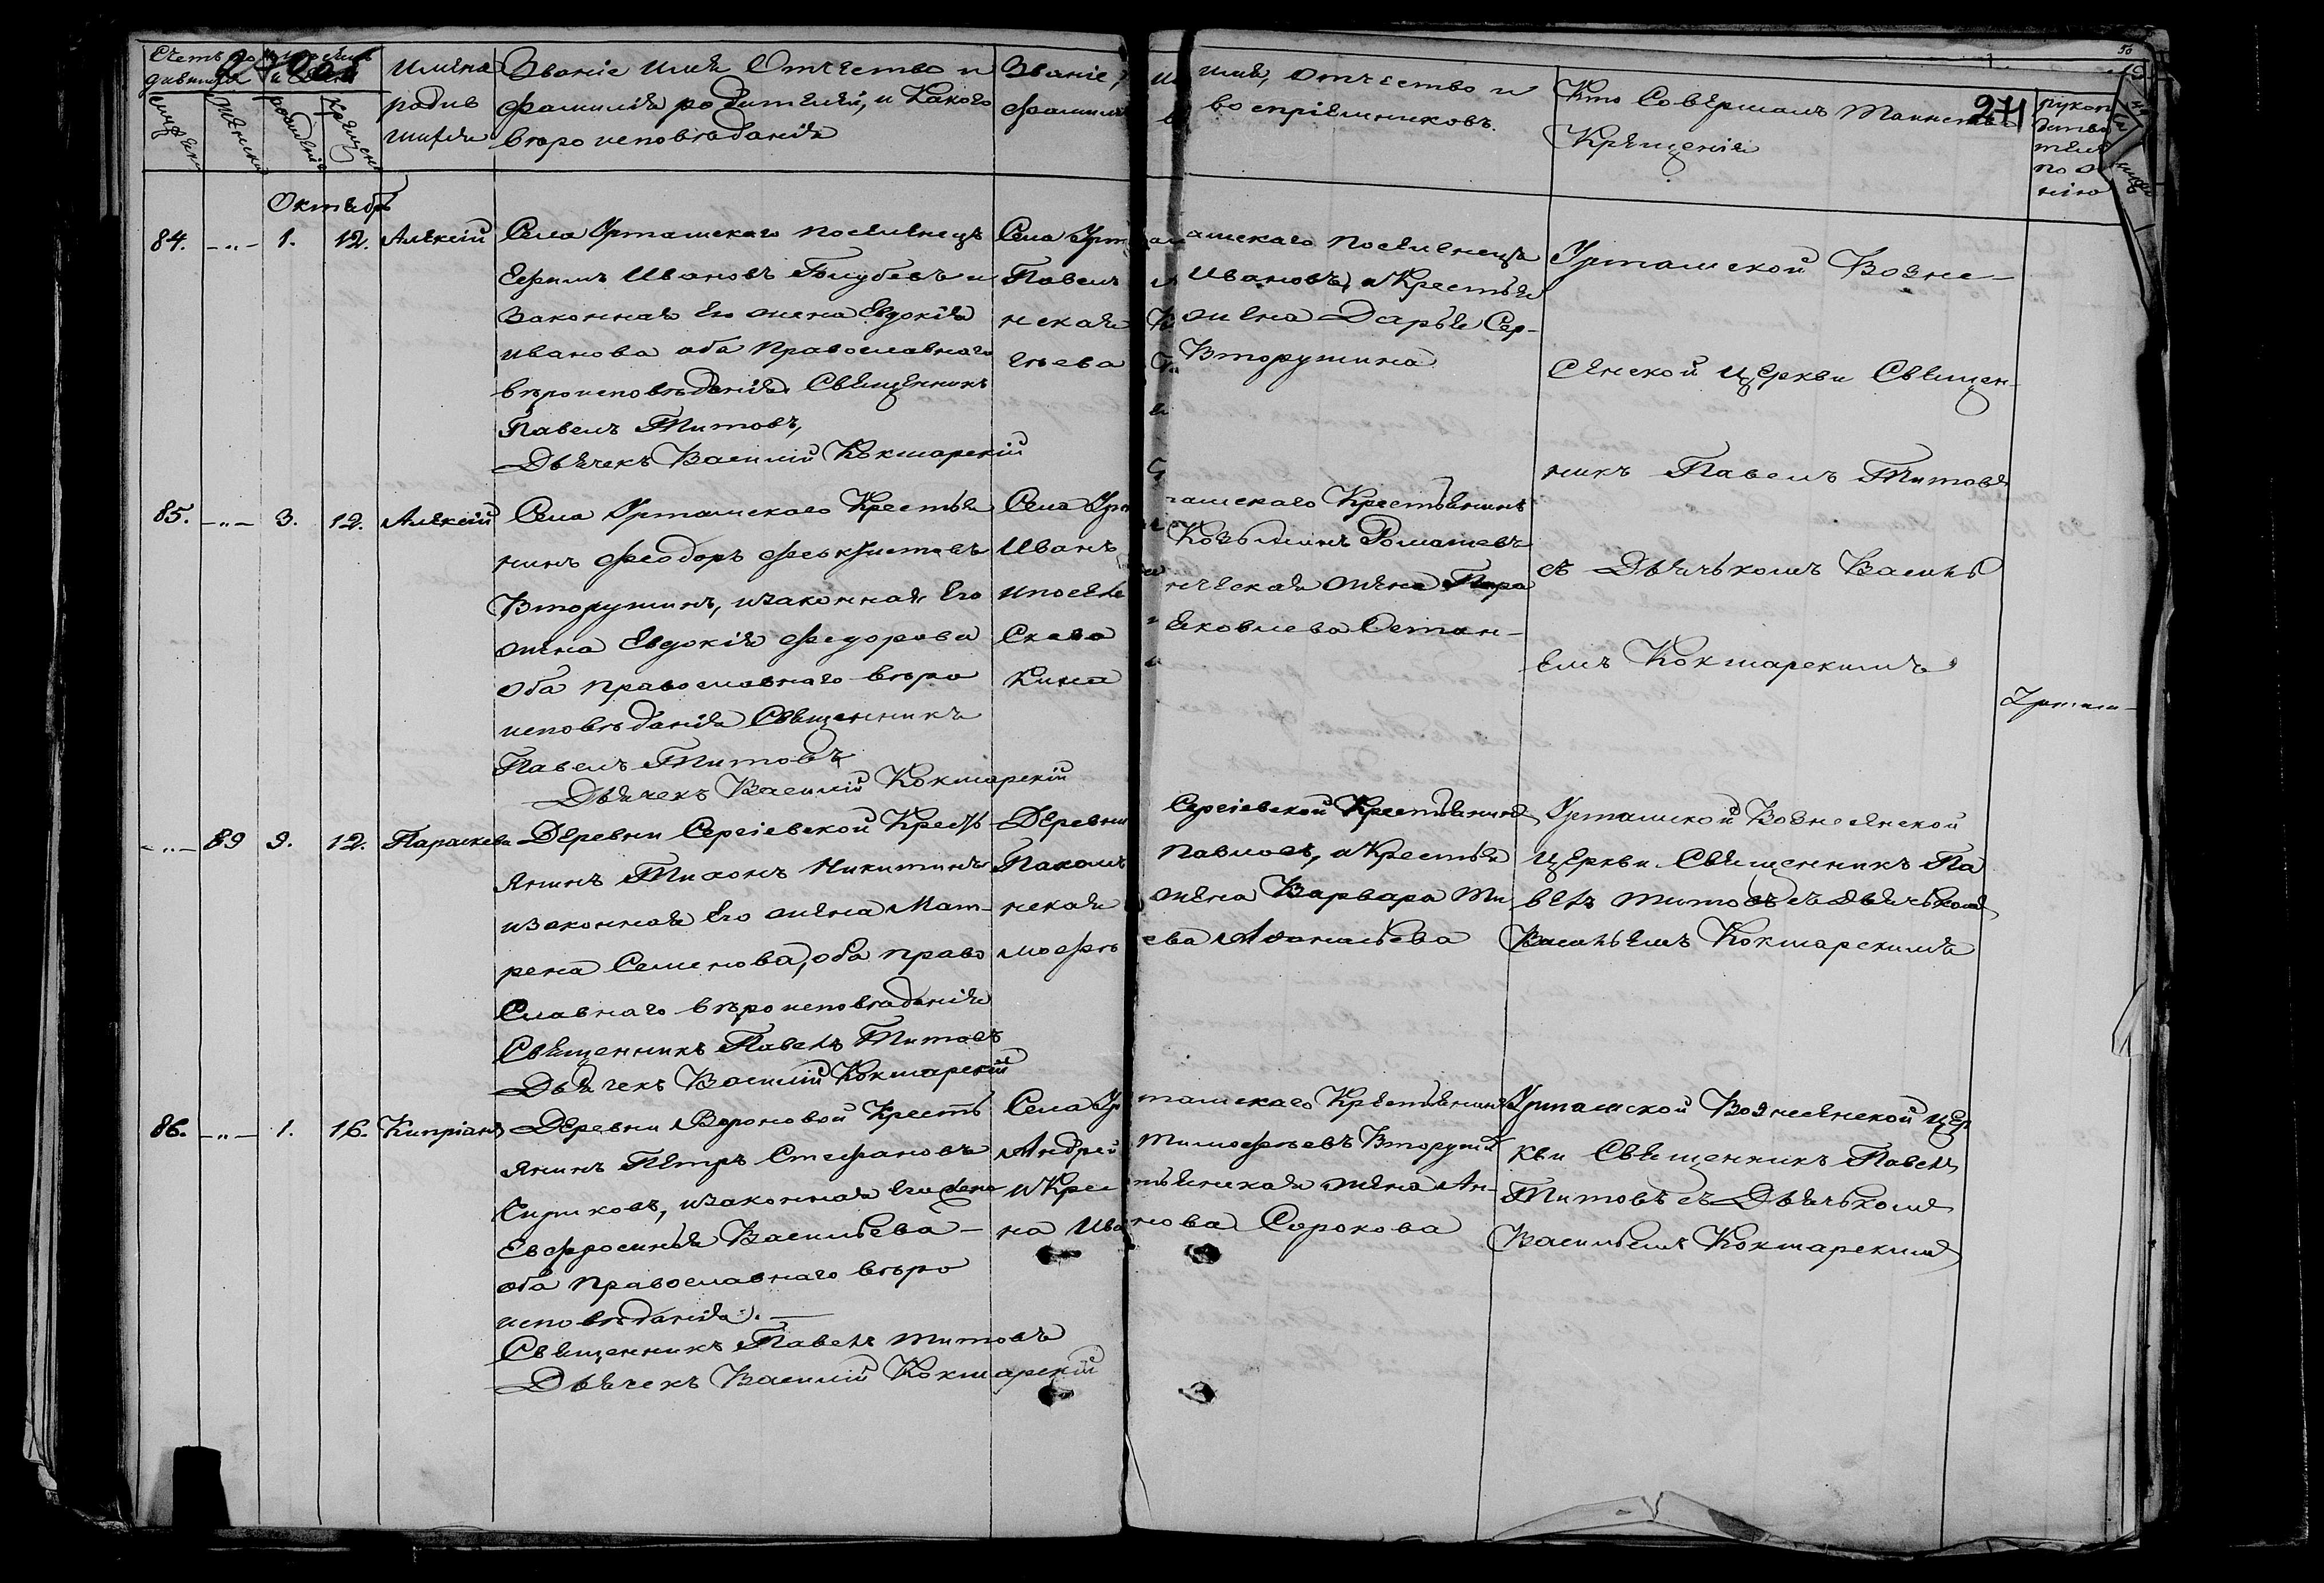 Имена
родив
шихся
Званіе имя Отчество и
фамилія родителей, и Какого
вѣроисповѣданія
Званіе,
фамилія
имя, отчество и
воспріемниковъ.
Кто Совершалъ Таинство
Крещенія
271
Октябрь
84. -"- 1. 12. Алексій
Села Урташскаго поселенецъ
Ефимъ Ивановъ Голубевъ и
Законная Его жена Евдокія
Иванова оба Православнаго
вѣроисповѣданія Священникъ
Павелъ Титовъ,
Дьячекъ Василій Кокшарскій
Села Урт
Павелъ
нская
гѣева
ашскаго Поселенецъ
Ивановъ, и Крестья
жена Дарья Сер-
Вторушина
Урташской Возне-
сенской Церкви Священ-
никъ Павелъ Титовъ
съ Дьячькомъ Василь
емъ Кокшарскимъ
85. -"- 3. 12. Алексій
Села Урташскаго Крестья
нинъ Феодоръ Феоктистовъ
Вторушинъ, изаконная Его
жена Евдокія Федорова
Оба православнаго вѣро
исповѣданія Священникъ
Павелъ Титовъ
Дьячекъ Василій Кокшарскій
Села Урт
Иванъ
ипоселе
Скева
кина
ашскаго Крестьянинъ
Козьминъ Ромашевъ
нческая жена Пара
Яковлева Остан-
-"- 89 9. 12. Параскева
Деревни Сергіевской Кресть
янинъ Тихонъ Никитинъ
изаконная Его жена Мат-
рена Семенова, оба право
славнаго вѣроисповѣданія
Священникъ Павелъ Титовъ
Дьячекъ Василій Кокшарскій
Деревни
Пахомъ
нская
мофѣ
Сергіевской Крестьянинъ
Павловъ, и Крестья
жена Варвара Ти
ева Ананьева
Урташской Вознесенской
Церкви Священникъ Па
велъ Титовъ съ Дьячькомъ
Васильемъ Кокшарскимъ
86. -"- 1. 16. Кипріанъ
Деревни Вороновой Кресть
янинъ Петръ Стефановъ
Чириковъ, изаконная Его жена
Евфросинья Васильева-
оба Православнаго вѣро
исповѣданія.
Священникъ Павелъ Титовъ
Дьячекъ Василій Кокшарскій
Села Ур
Андрей
и Крес
на Ива
ташскаго Крестьянинъ
Тимофѣевъ Вторушинъ
тьянская жена Ан-
нова Сорокова
Урташской Вознесенской Цер
кви Священникъ Павелъ
Титовъ съ Дьячькомъ
Васильемъ Кокшарскимъ